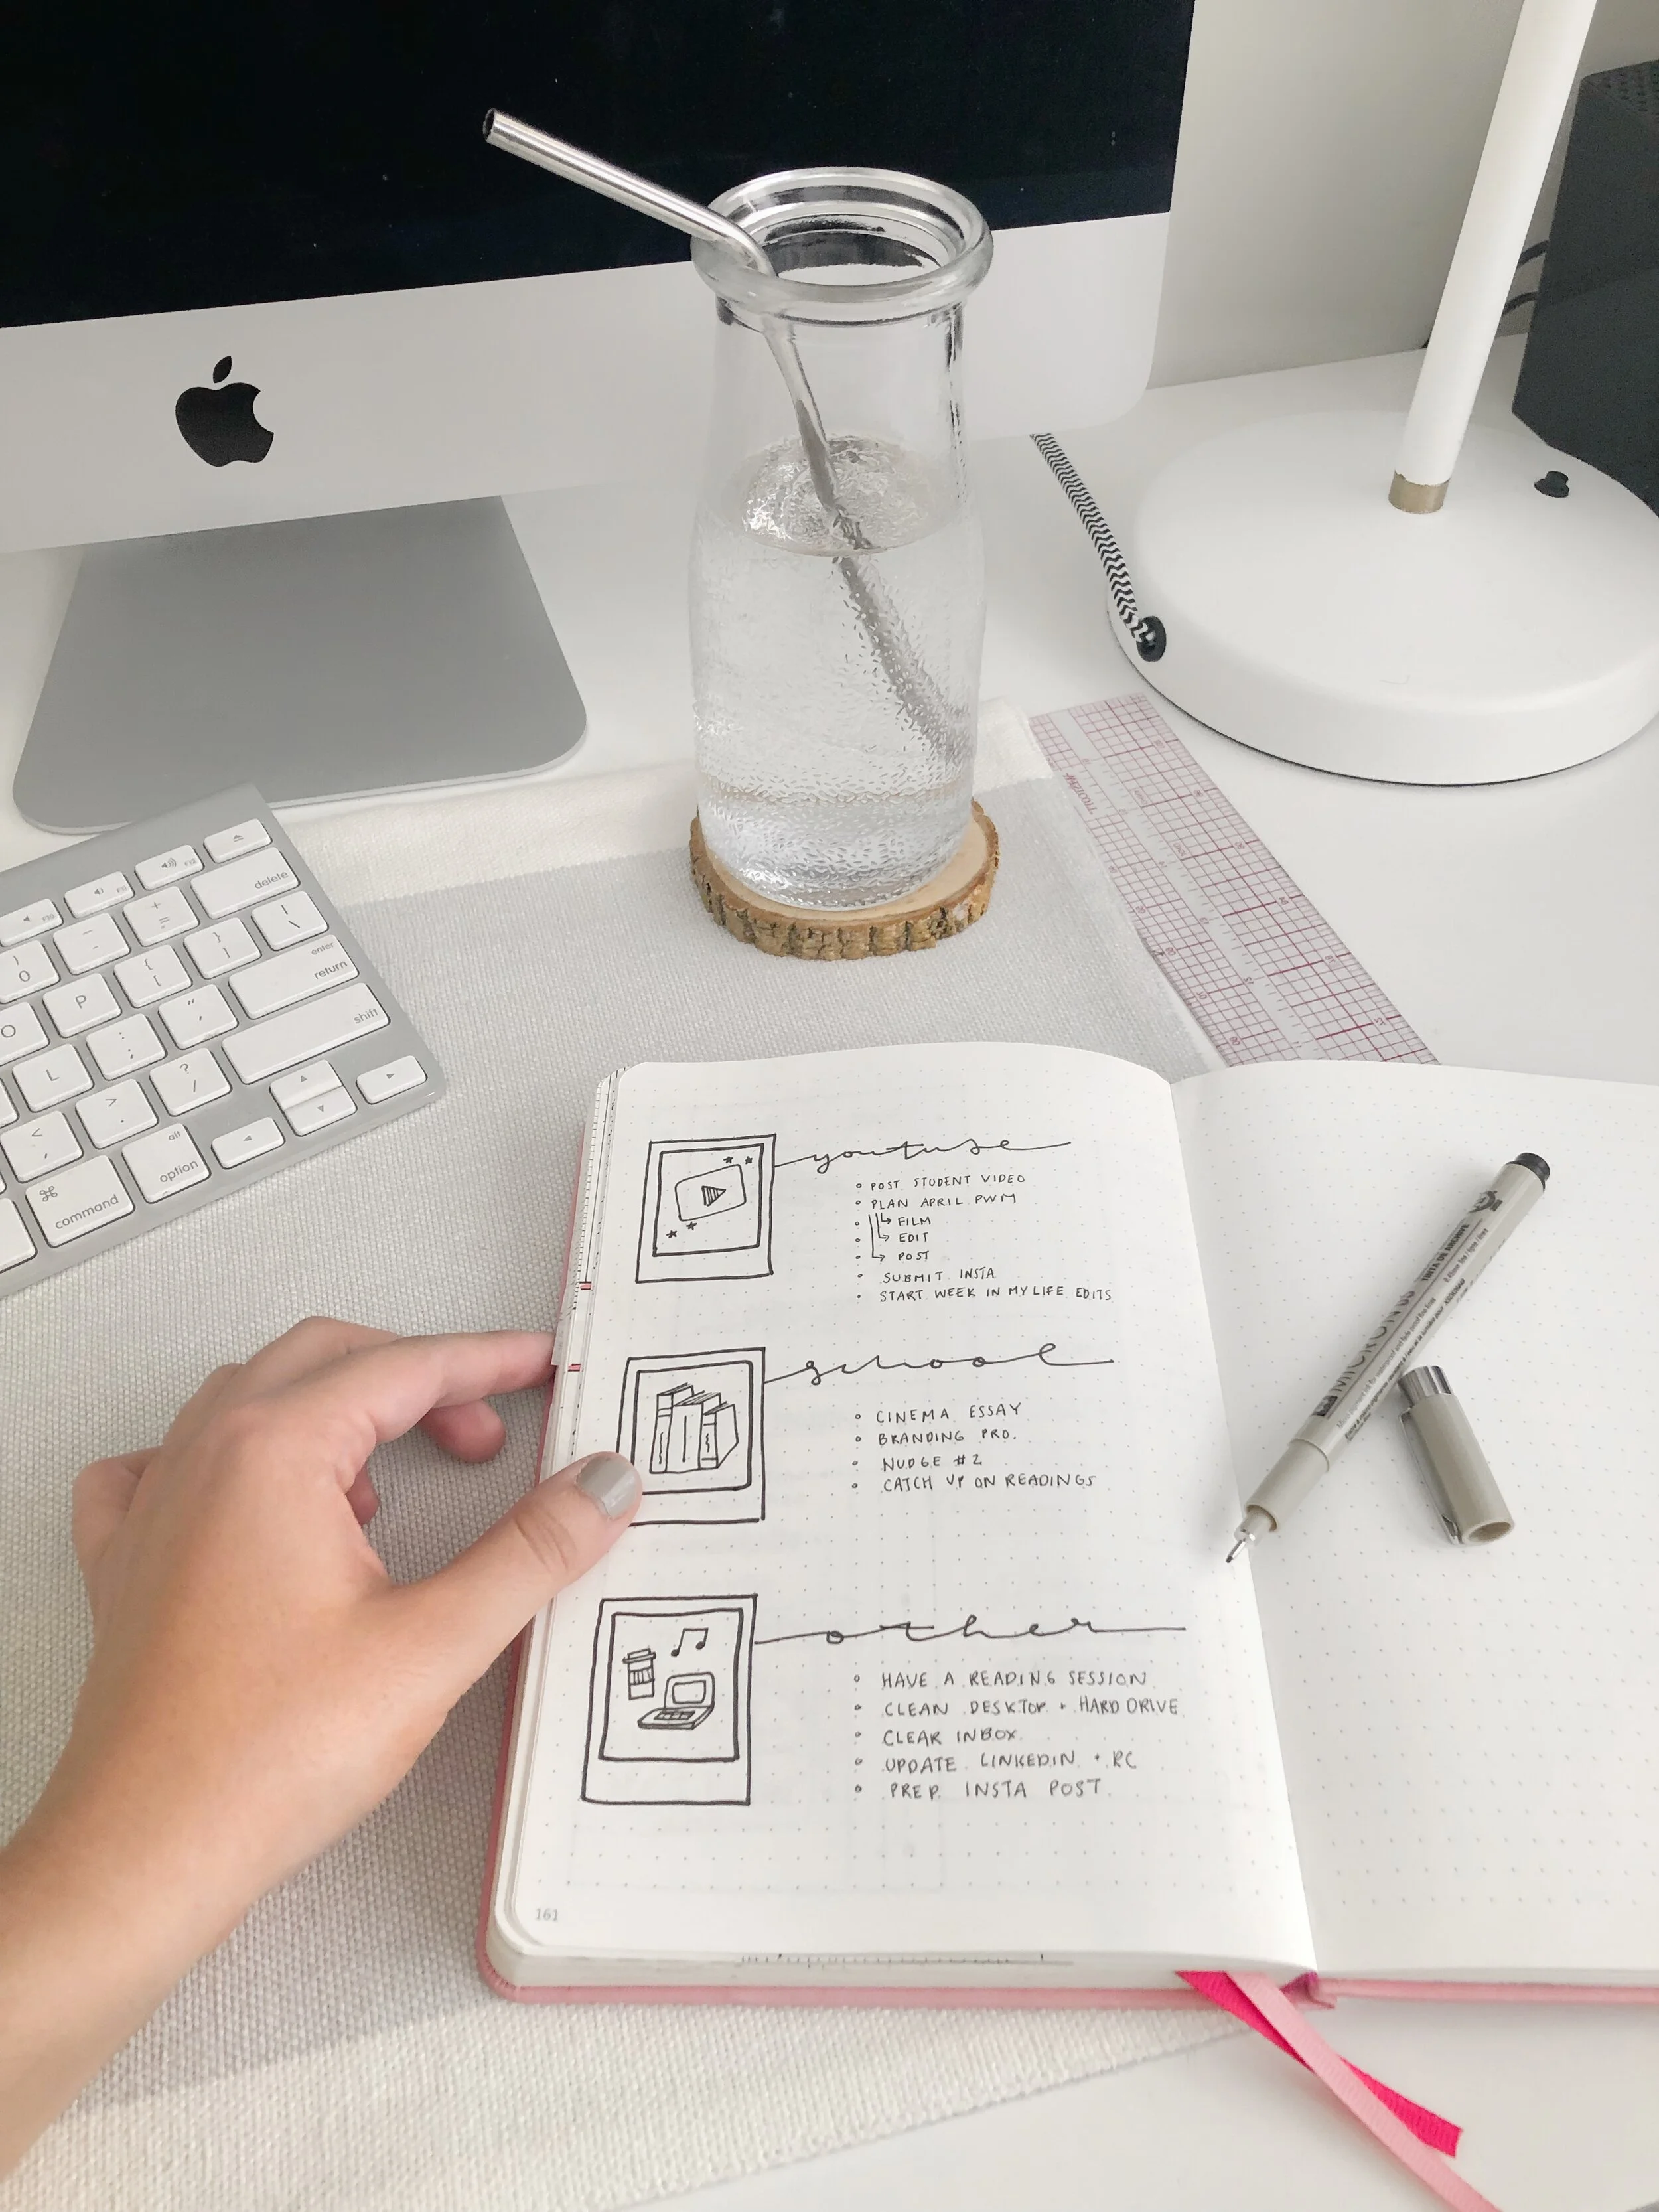 delete
enter
return
shift
P
O
L
alt
option
command
youtube
POST STUDENT VIDEO
PLAN APRIL PWM
FILM
EDIT
POST
SUBMIT INSTA
START WEEK IN MY LIFE EDITS
school
CINEMA ESSAY
BRANDING PRO.
NUDGE #2
CATCH UP ON READINGS
other
HAVE A READING SESSION
CLEAN DESKTOP + HARD DRIVE
CLEAR INBOX
UPDATE LINKEDIN + RC
PREP INSTA POST
161
MICRON